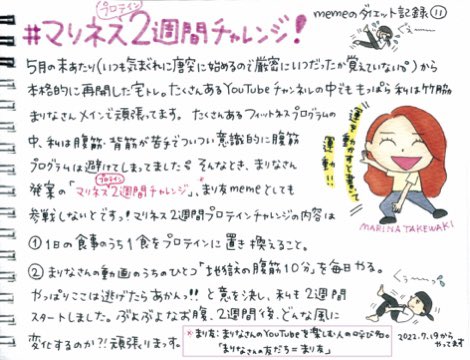 memeのダイエット記録⑪
プロテイン
#マリネス2週間チャレンジ!
5月の末あたり(いつも気まぐれに唐突に始めるので厳密にいつだったか覚えていない💦)から
本格的に再開した宅トレ。たくさんあるYouTubeチャンネルの中でももっぱら私は竹脇
まりなさんメインで頑張ってます。たくさんあるフィットネスプログラムの
中、私は腹筋・背筋が苦手でついつい意識的に腹筋
プログラムは避けてしまってました💦そんなとき、まりなさん
プロテイン
発案の「マリネス2週間チャレンジ」、まり友memeとしても
参戦しないとですっ!マリネス2週間プロテインチャレンジの内容は
①1日の食事のうち1食をプロテインに置き換えること。
②まりなさんの動画のうちのひとつ「地獄の腹筋10分」を毎日やる。
やっぱりここは逃げたらあかんっ!!と意を決し、私も2週間
スタートしました。ぷよぷよなお腹、2週間後、どんな風に
変化するのか?!頑張りまっす。
運を動かすと書いて
運動!!
MARINA TAKEWAKI
※まり友:まりなさんのYouTubeを楽しむ人の呼び名。
「まりなさんの友だち=まり友」
2022.7.19から
やってます